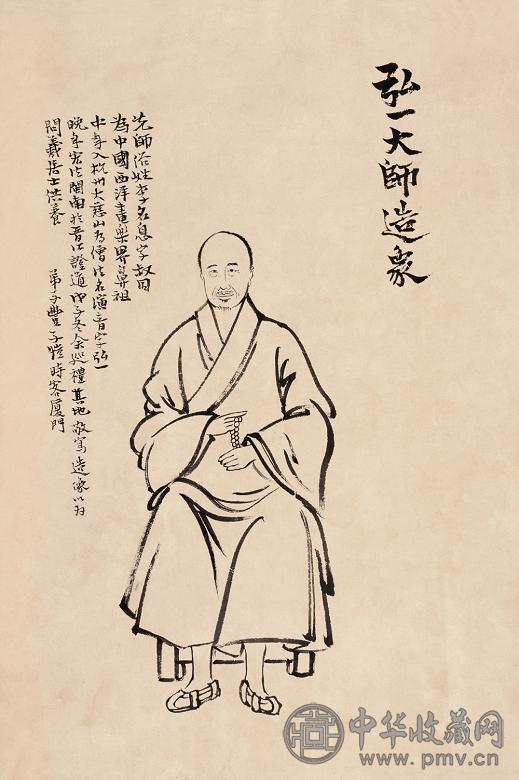 弘一大師造象
先師俗姓李名息字叔同
為中國西洋畫樂界鼻祖
中年入杭州大慈山為僧法名演音字弘一
晚年宏法閩南於晋江證道戊子冬余巡禮其地敬寫造象以归
問羲居士供養
弟子豐子愷時客厦門
中华收藏网
www.pmv.cn